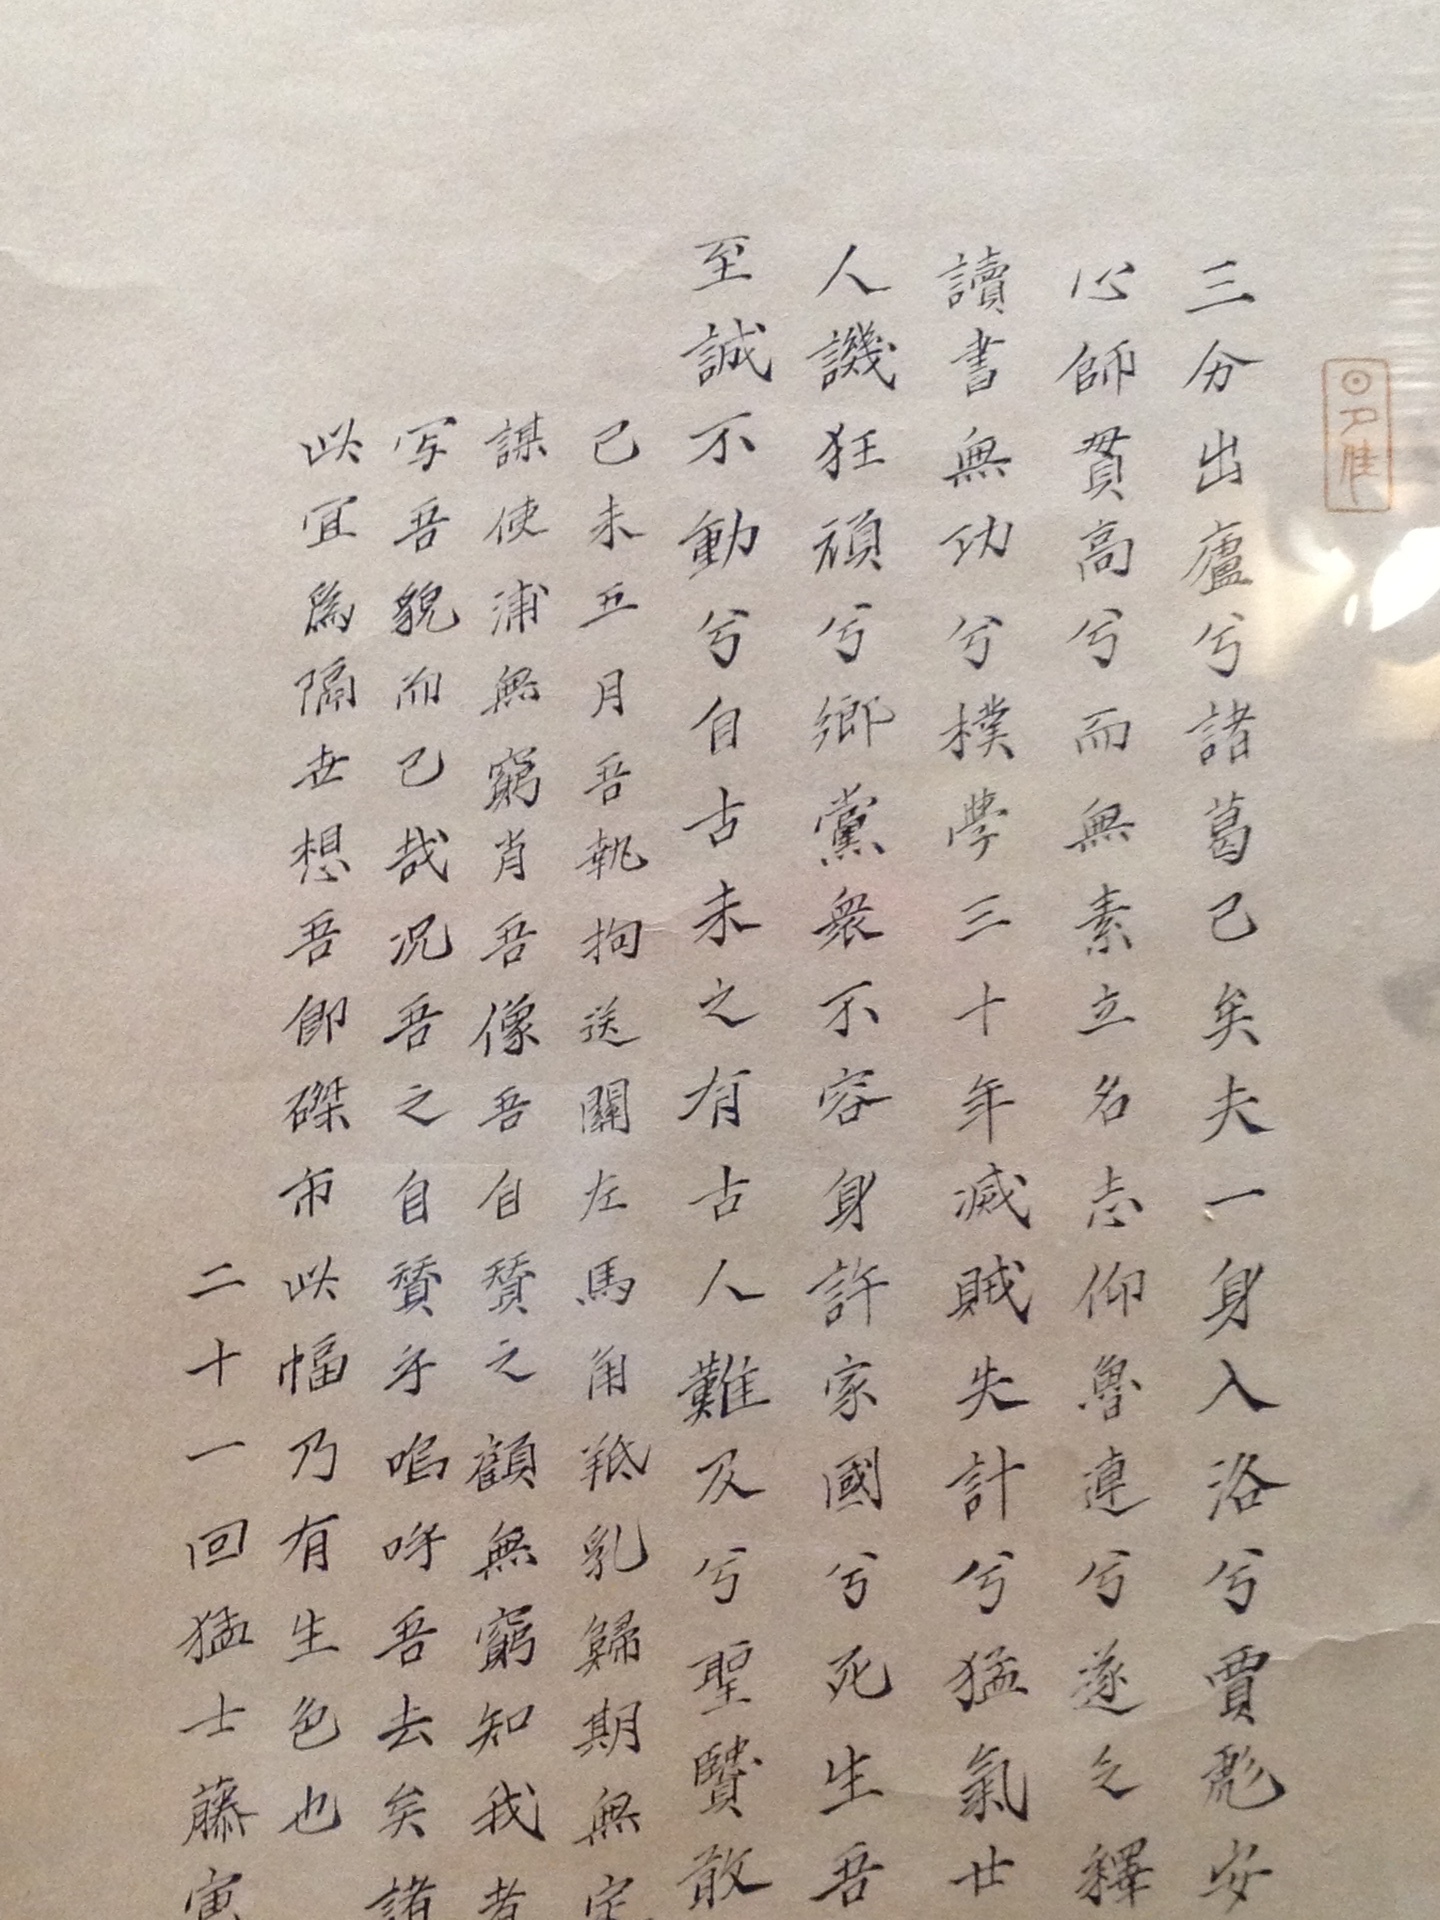 三分出廬兮諸葛已矣夫一身入洛兮賈彪安
心師貫高兮而無素立名志仰魯連兮遂乏釋
讀書無功兮樸學三十年滅賊失計兮猛氣廿
人譏狂頑兮鄉黨衆不容身許家國兮死生吾
至誠不動兮自古未之有古人難及兮聖賢敢
己未五月吾執拘送關左馬角羝乳歸期無定
謀使浦無窮肖吾像吾自賛之顧無窮知我者
写吾貌而已哉况吾之自賛乎嗚呼吾去矣諸
此宜為隔世想吾卽磔市此幅乃有生色也
二十一回猛士藤寅